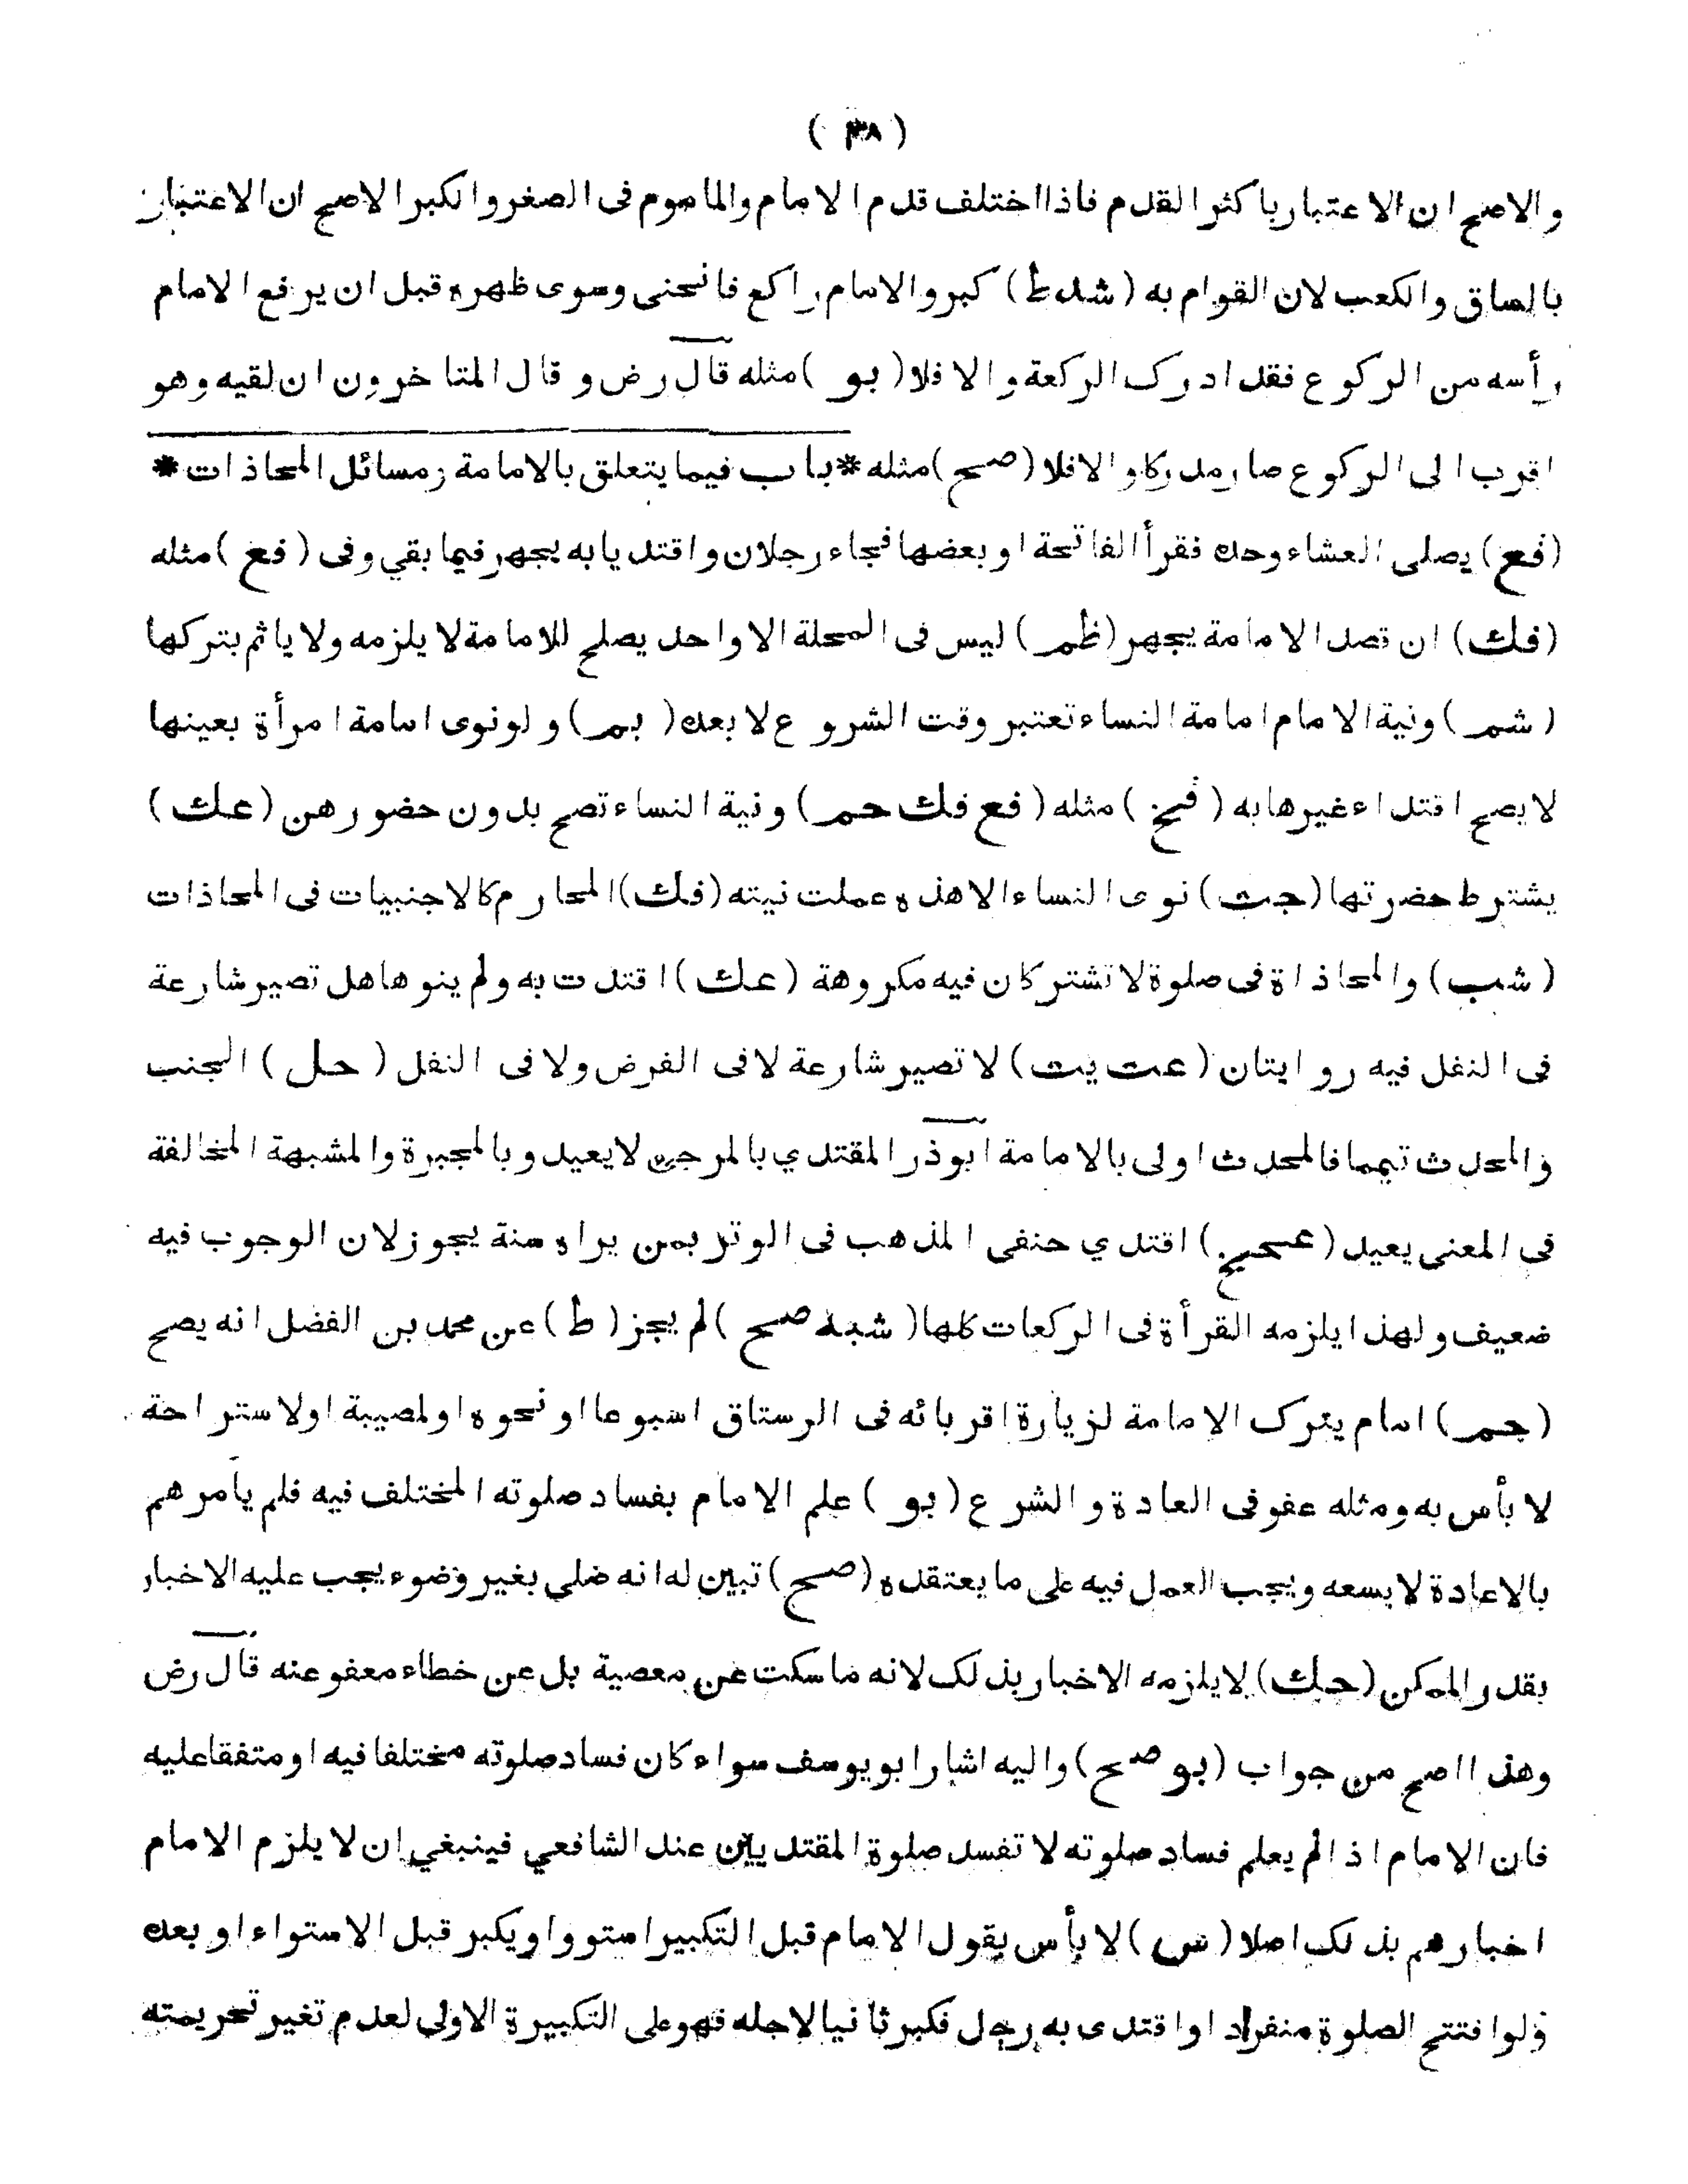 ( ٣٨ )
والاصح ان الاعتبار باكثر القدم فاذا اختلف قدم الامام والماموم فى الصغر والكبر الاصح ان الاعتبار
بالساق والكعب لان القوام به (شد ط) كبر والامام راكع فانحنى وسوى ظهره قبل ان يرفع الامام
رأسه من الركوع فقد ادرك الركعة والا فلا (بو) مثله قال رض وقال المتاخرون ان لقيه وهو
اقرب الى الركوع صار مدركا والا فلا (صح) مثله * باب فيما يتعلق بالامامة ومسائل المحاذات *
(فع) يصلى العشاء وحده فقرأ الفاتحة او بعضها فجاء رجلان واقتديا به يجهر فيما بقي وفى (فع) مثله
(فك) ان قصد الامامة يجهر (ظم) ليس فى المحلة الا واحد يصلح للامامة لا يلزمه ولا ياثم بتركها
(شم) ونية الامام امامة النساء تعتبر وقت الشروع لا بعده (بم) ولو نوى امامة امرأة بعينها
لا يصح اقتداء غيرها به (فخ) مثله (فع فك حم) ونية النساء تصح بدون حضورهن (عك)
يشترط حضرتها (جت) نوى النساء الا هذه عملت نيته (فك) المحارم كالاجنبيات فى المحاذات
(شب) والمحاذاة فى صلوة لا تشتركان فيه مكروهة (عك) اقتدت به ولم ينوها هل تصير شارعة
فى النفل فيه روايتان (عت يت) لا تصير شارعة لا فى الفرض ولا فى النفل (حل) الجنب
والمحدث تيمما فالمحدث اولى بالامامة ابوذر المقتدي بالمرجئ لا يعيد وبالمجبرة والمشبهة المخالفة
فى المعنى يعيد (عحیح) اقتدي حنفى المذهب فى الوتر بمن يراه سنة يجوز لان الوجوب فيه
ضعيف ولهذا يلزمه القرأة فى الركعات كلها (شبد صح) لم يجز (ط) عن محمد بن الفضل انه يصح
(جم) امام يترك الامامة لزيارة اقربائه فى الرستاق اسبوعا او نحوه او لمصيبة او لاستراحة
لا بأس به ومثله عفو فى العادة والشرع (بو) علم الامام بفساد صلوته المختلف فيه فلم يأمرهم
بالاعادة لا يسعه ويجب العمل فيه على ما يعتقده (صح) تبين له انه صلى بغير وضوء يجب عليه الاخبار
بقدر الممكن (حك) لا يلزمه الاخبار بذلك لانه ما سكت عن معصية بل عن خطاء معفو عنه قال رض
وهذا اصح من جواب (بو صح) واليه اشار ابو يوسف سواء كان فساد صلوته مختلفا فيه او متفقا عليه
فان الامام اذا لم يعلم فساد صلوته لا تفسد صلوة المقتديين عند الشافعي فينبغي ان لا يلزم الامام
اخبارهم بذلك اصلا (س) لا بأس بقول الامام قبل التكبير استووا ويكبر قبل الاستواء او بعده
ولو افتتح الصلوة منفردا واقتدى به رجل فكبر ثانيا لاجله فهو على التكبيرة الاولى لعدم تغير تحريمته